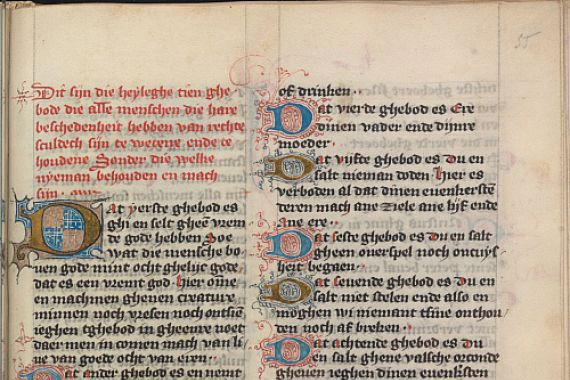 55
Dit sijn die heyleghe tien ghe
bode die alle menschen die hare
beschedenheit hebben van rechte
sculdech sijn te wetene ende te
houdene Sonder die welke
nyeman behouden en mach
sijn
Dat yerste ghebod es
ghi en selt gheen vrem
de gode hebben Soe
wat die mensche bo
uen gode mint ocht ghelijc gode
dat es een vremt god hier omme
en machmen ghene creature
minnen noch vresen noch ontsie
ieghen tghebod in gheeure noet
daer men in comen mach van li
ue van goede ocht van eren
Dat ander ghebod es en nemt
of drinken
Dat vierde ghebod es Ere
dinen vader ende dijnre
moeder
Dat vijfte ghebod es Du en
salt nieman doden hier es
verboden al dat dinen euenkerste
deren mach ane ziele ane lijf ende
ane ere
Dat seste ghebod es Du en salt
gheen ouerspel noch oncuys
heit begaen
Dat seuende ghebod es Du en
salt niet stelen ende also en
moghen wi niemant tsine onthou
den noch af breken
Dat achtende ghebod es du
en salt ghene valsche orconde
gheuen ieghen dinen euenkersten